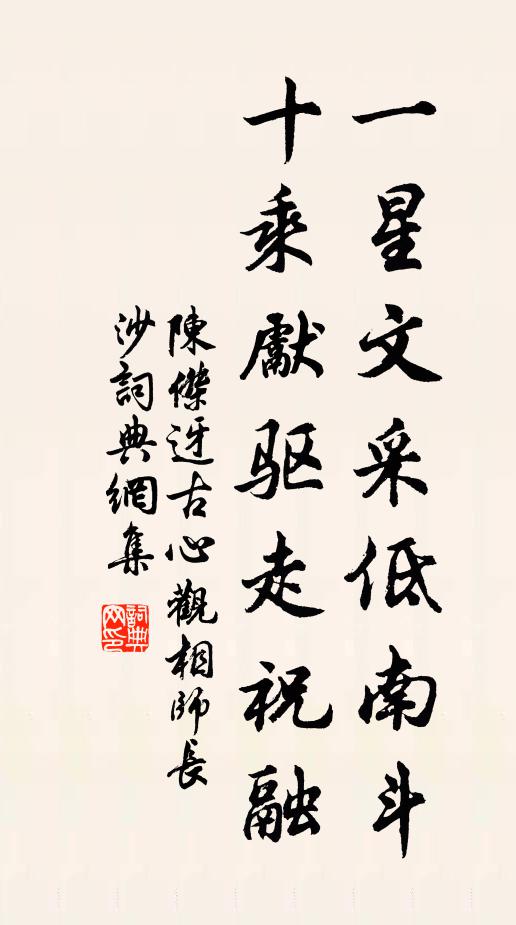 一星文采低南斗
十乘獻驱走祝融
陳傑迓古心觀相師長
沙詞典網集
詞典網印